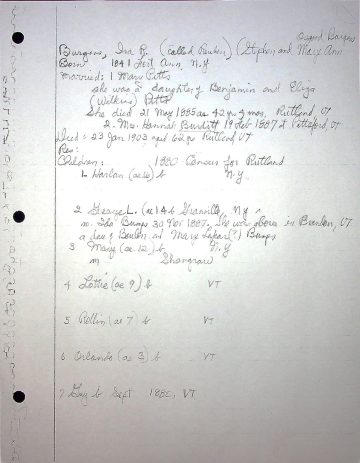 Burgess, Ira R. (called Reuben) (Stephen and Mary Ann
Born 1841 Fort Ann, N.Y
Married: 1 Mary Potts
she was a daughter of Benjamin and Eliza
(Wilkins) Potts
She died 21 May 1885 ae 42 yrs mos, Rutland, VT
2. Mrs. Hannah Burditt 19 Feb 1887 at Pittsford, VT
Died: 23 Jan 1903 aged 62 yr Rutland, VT
Res:
Children: 1880 Census for Rutland
1. Harlan (ae 16) b N.Y.
2. George L. (ae 14 b Granville, N.Y
m. Ida Bumps 30 Nov 1887. She was born in Brandon, VT
a dau of Reuben and Mary Bumps
3 Mary (ae 12) b N.Y
m Shangraw
4 Lottie (ae 9) b VT
5 Rollin (ae 7) b VT
6 Orlando (ae 3) b VT
7 Guy b Sept 1880, VT